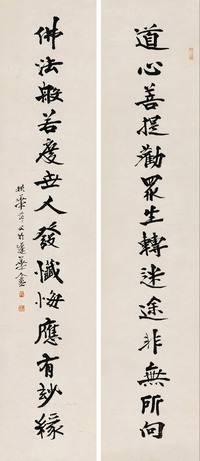 道心善提勸眾生轉迷途非無所向
佛法般若度世人發懺悔應有妙緣